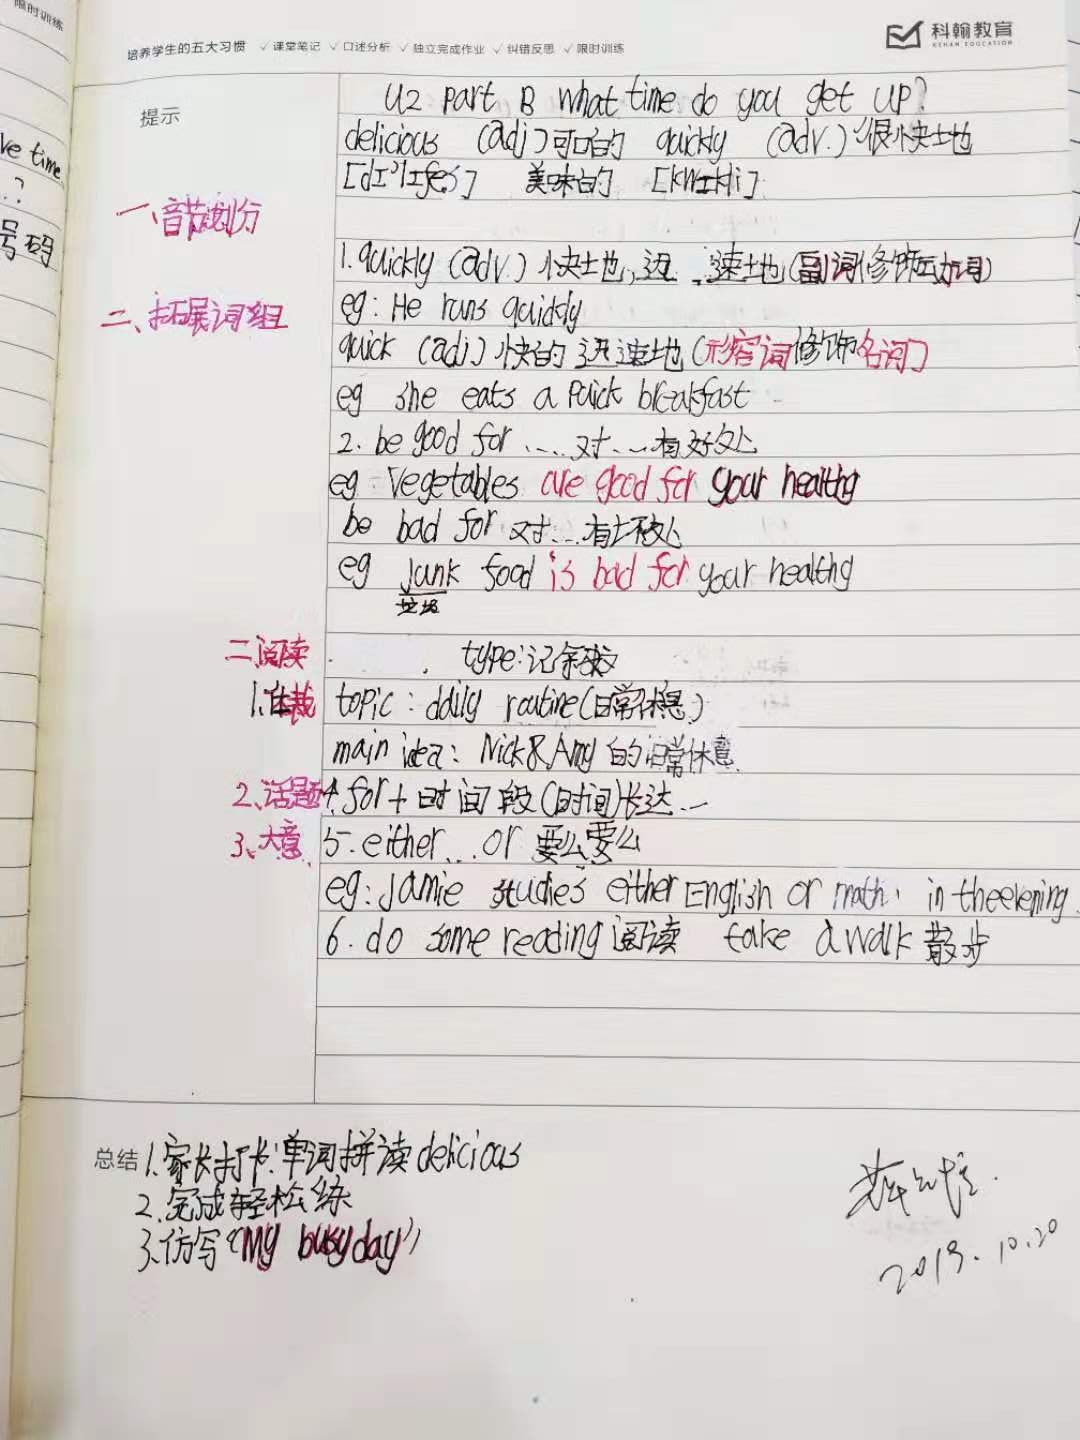 限时训练
培养学生的五大习惯 ✓课堂笔记 ✓口述分析 ✓独立完成作业 ✓纠错反思 ✓限时训练
科翰教育
KEHAN EDUCATION
ve time
?
号码
提示
U2 part B What time do you get up?
delicious (adj) 可口的 quickly (adv.) 很快地
美味的
一、音节划分
1. quickly (adv.) 快地, 迅速地 (副词修饰动词)
二、拓展词组
eg: He runs quickly
quick (adj) 快的 迅速地 (形容词修饰名词)
eg she eats a quick breakfast
2. be good for ......对......有好处
eg Vegetables are good for your healthy
be bad for 对...有坏处
eg junk food is bad for your healthy
垃圾
二、阅读
type: 记叙
1.体裁
topic: daily routine (日常休息)
main idea: Nick & Amy 的日常休息
2、话题
4. for + 时间段 (时间) 长达...
3、大意
5. either... or 要么要么
eg: Jamie studies either English or math in the evening
6. do some reading 阅读 take a walk 散步
总结
1. 家长打卡: 单词拼读 delicious
2. 完成轻松练
3. 仿写《My busy day》
2019.10.20